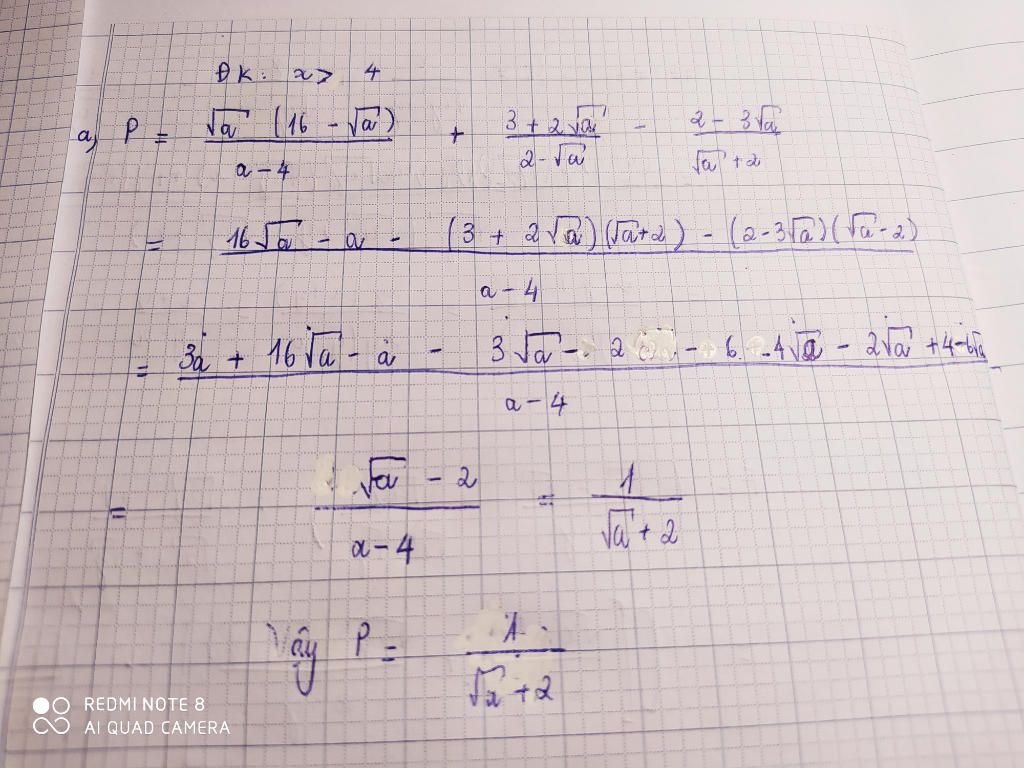 ĐK: x > 4
a) P = √a (16 - √a) / a - 4 + 3 + 2√a / 2 - √a - 2 - 3√a / √a + 2
= 16√a - a - (3 + 2√a)(√a + 2) - (2 - 3√a)(√a - 2) / a - 4
= 3a + 16√a - a - 3√a - 2 - 6 - 4√a - 2√a + 4 - 6√a / a - 4
= √a - 2 / a - 4 = 1 / √a + 2
Vậy P = 1 / √x + 2
REDMI NOTE 8
AI QUAD CAMERA